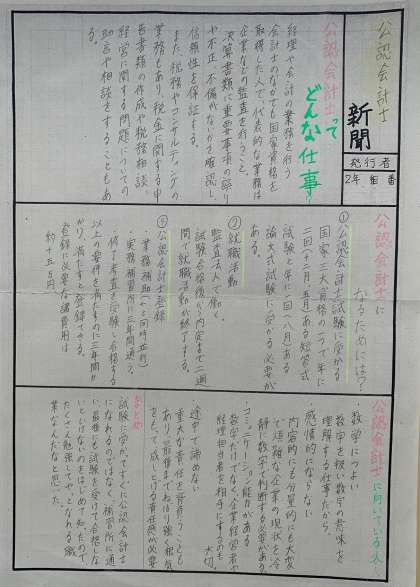 公認会計士
新聞
発行者
2年 組 番
公認会計士って
どんな仕事?
経理や会計の業務を行う
会計士のなかでも国家資格を
取得した人で、代表的な業務は
企業などの監査を行うこと。
決算書類に重要事項の誤り
や不正、不備がないかを確認し
信頼性を保証する。
また、税務やコンサルティングの
業務もあり、税金に関する申
告書類の作成や税務相談、
経営に関する問題についての
助言や相談をすることもあ
る。
公認会計士に
なるためには?
①公認会計士試験に受かる
国家三大資格の一つで、年に
二回(十二月、五月)ある短答式
試験と年に一回(八月)ある
論文式試験に受かる必要が
ある。
②就職活動
監査法人で働く。
試験合格後から内定まで二週
間で就職活動が終了する。
③公認会計士登録
・業務補助(②と同時並行)
・実務補習所に三年間通う。
・修了考査を受験、合格する
以上の要件を満たすのに三年間か
かり、満たすと登録できる。
登録に必要な諸費用は
約十五万円。
公認会計士に向いている人
・数学につよい
数字を扱い数字の意味を
理解する仕事だから。
・感情的にならない
内容的にも分量的にも大変
で煩雑な企業の現状を冷
静に数字で判断する必要がある
・コミュニケーション能力がある
数字だけでなく、企業経営者や
経理担当者を相手にするのも
大切。
・途中で諦めない
重大な責任を背負うことも
あり、最後までねばり強く根気
をもって成しとげる責任感が必要
まとめ
試験に受かってすぐに公認会計士
になれるのではなく、補習所に通
い、最後にも試験を受けて合格しな
いといけないのをはじめて知ったので、
たくさん勉強してやっとなれる職
業なんだなと思った。